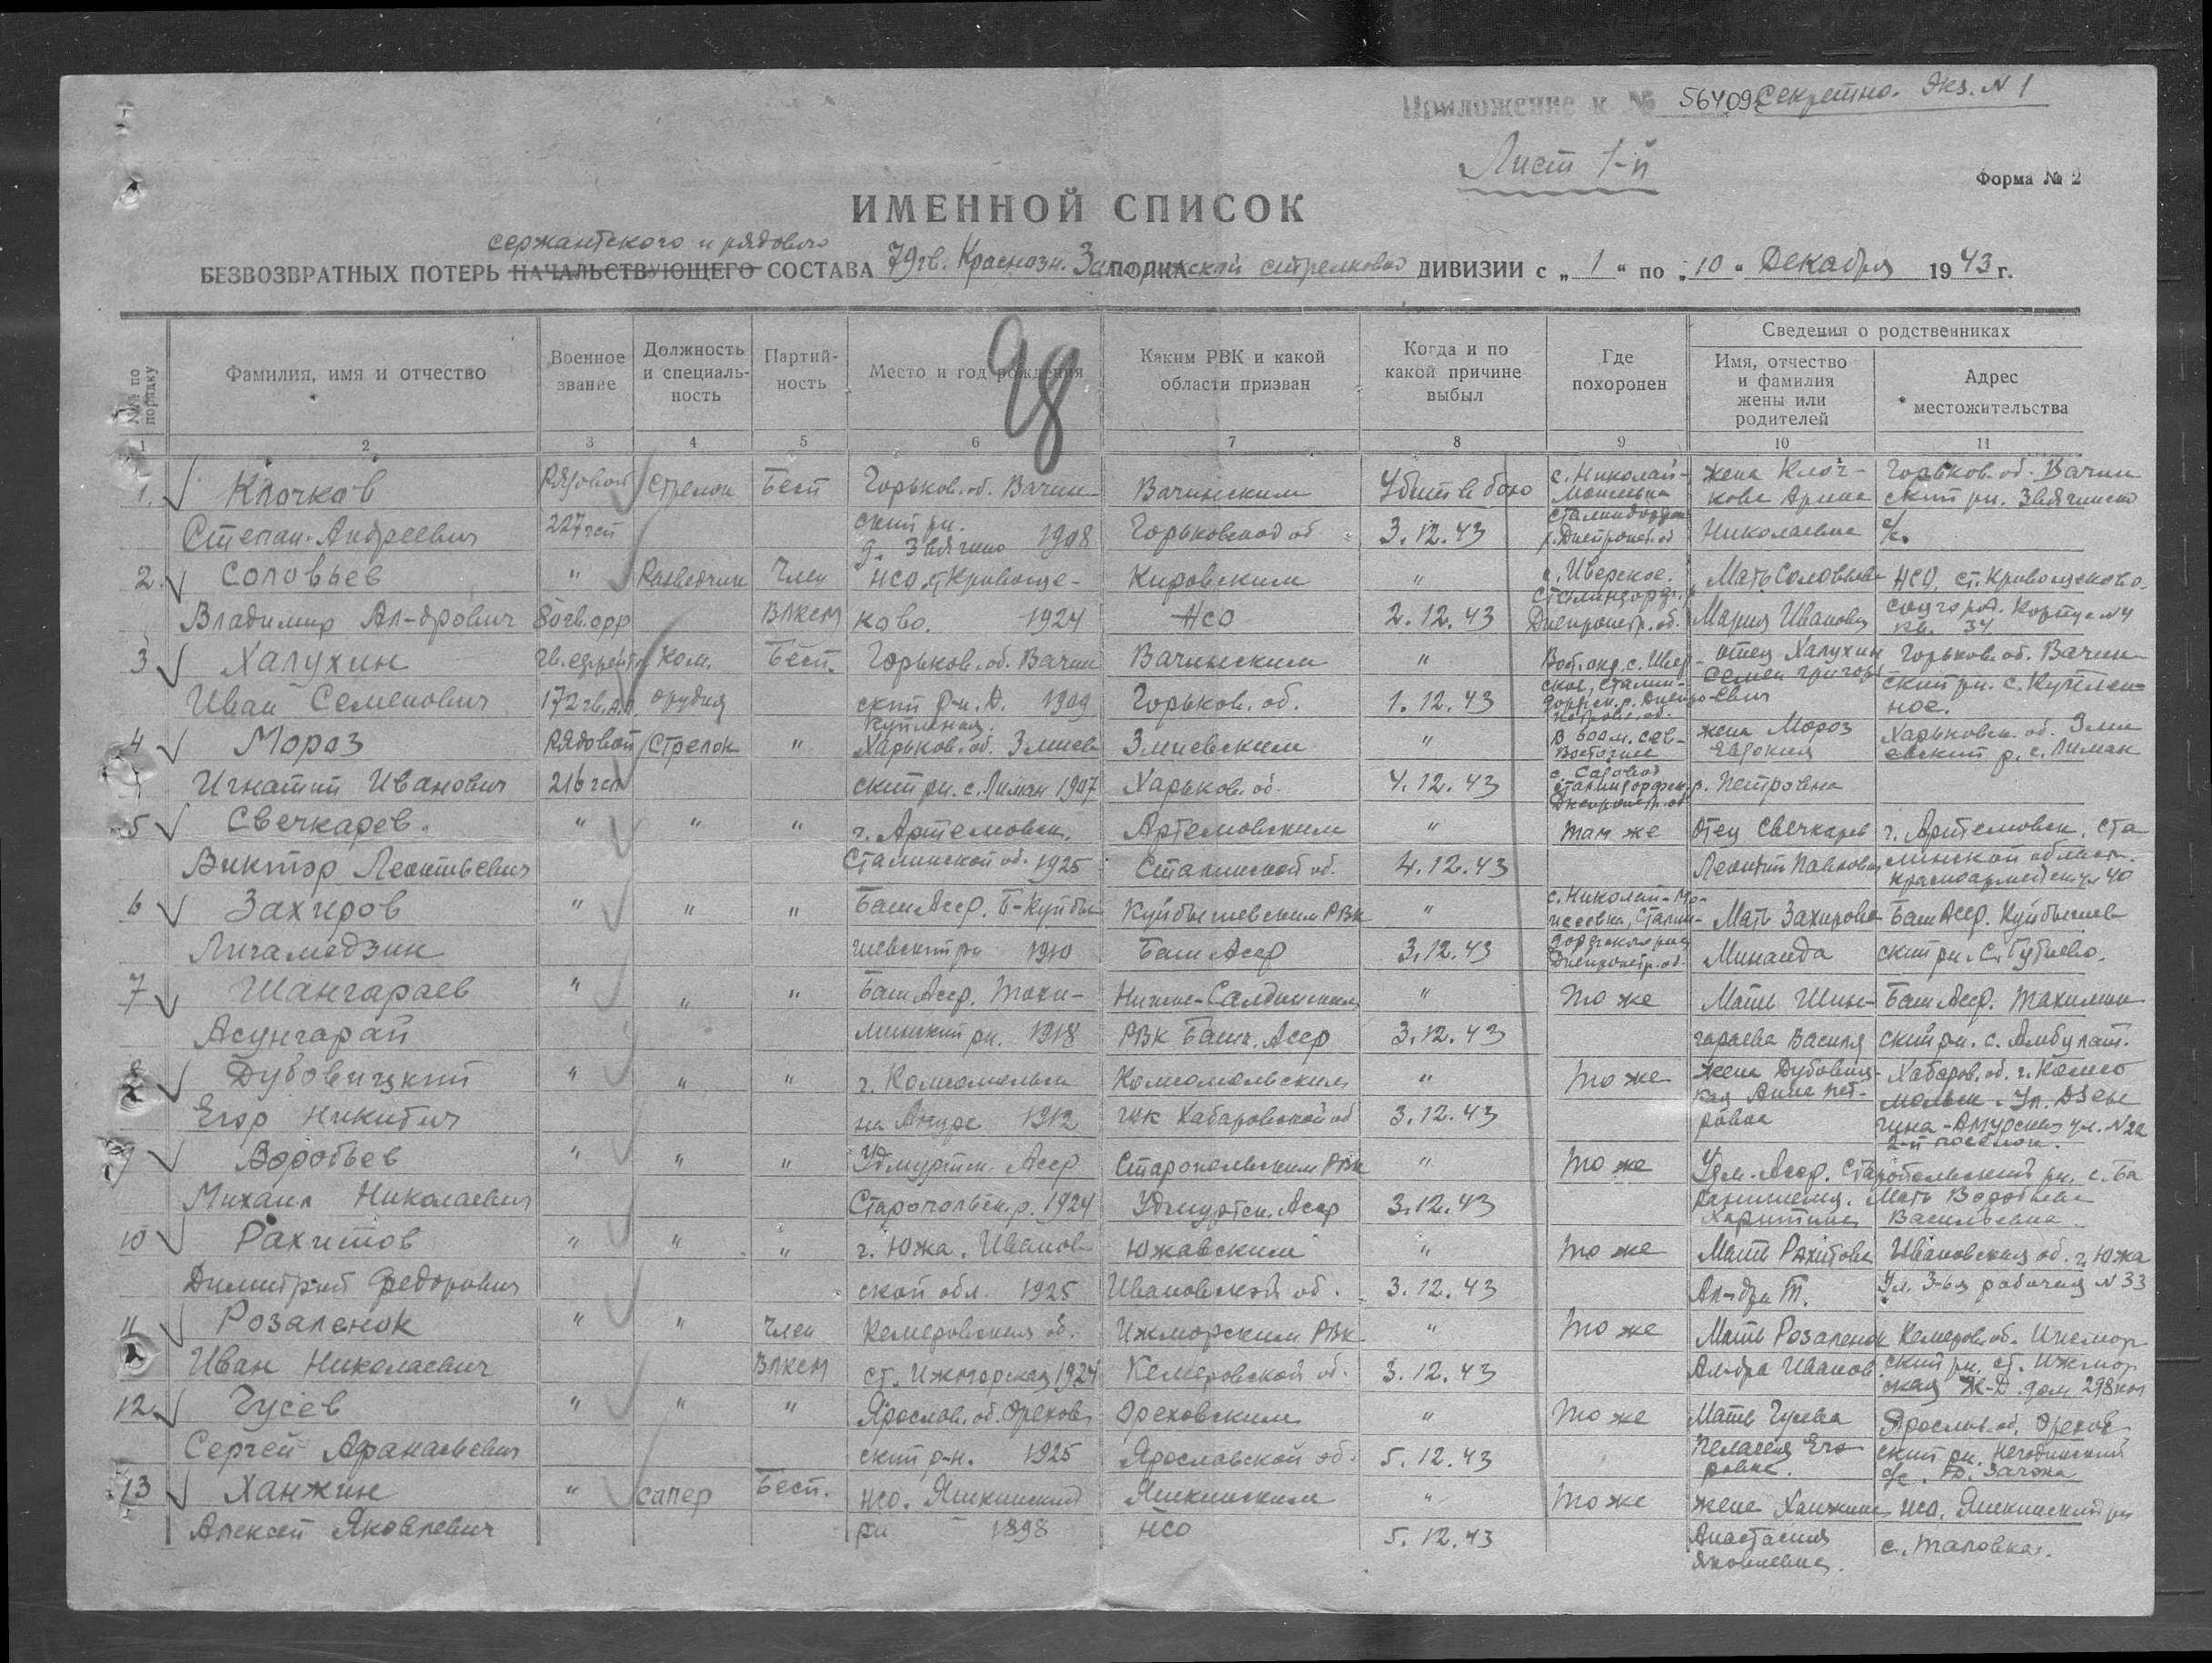 Приложение к № 56409с Секретно. Экз. № 1
Лист 1-й
Форма № 2
ИМЕННОЙ СПИСОК
сержантского и рядового
БЕЗВОЗВРАТНЫХ ПОТЕРЬ НАЧАЛЬСТВУЮЩЕГО СОСТАВА 79 гв. Краснозн. Запорожской стрелковой ДИВИЗИИ с „ 1 " по „ 10 " Декабря 1943 г.
98
№№ по порядку
Фамилия, имя и отчество
Военное звание
Должность и специальность
Партийность
Место и год рождения
Каким РВК и какой области призван
Когда и по какой причине выбыл
Где похоронен
Сведения о родственниках
Имя, отчество и фамилия жены или родителей
Адрес местожительства
1 2 3 4 5 6 7 8 9 10 11
1. Клочков Рядовой Стрелок Бесп Горьков. об. Вачин- Вачинским Убит в бою с. Николай- жена Клоч- Горьков. об. Вачин
Степан Андреевич 227 гсп ский рн. д. Звягино 1908 Горьковской об 3.12.43 Сталиндорфск. р. Днепропет. об Николаевна с/с.
2. Соловьев " Разведчик Член НСО ст. Кривоще- Кировским " с. Иверское. Мать Соловьева НСО, ст. Кривощеково.
Владимир Ал-дрович 80 гв. орр ВЛКСМ ково. 1924 НСО 2.12.43 Сталиндорф. Днепропетр. об. Мария Ивановна соцгород. Корпус №4 кв. 34
3 Халухин гв. ефрейтор Ком. Бесп. Горьков. об. Вачин Вачинским " отец Халухин Горьков. об. Вачин-
Иван Семенович 172 гв. а.п. орудия ский р-н. д. 1909 Горьков. об. 1.12.43 Семен Григорьевич ский рн. с.
4 Мороз Рядовой Стрелок " Харьков. об. Змиев Змиевским " Восточнее жена Мороз Евдокия Харьковск. об. Змиевский р. с. Лиман
Игнатий Иванович 216 гсп ский рн. с. Лиман 1907 Харьков. об. 4.12.43 с. Садовой Сталиндорфск. р. Днепропетр. об Петровна
5 Свечкарев. " " " г. Артемовск. Артемовским " там же Отец Свечкарев г. Артемовск, Ста
Виктор Леонтьевич Сталинской об. 1925 Сталинской об. 4.12.43 Леонтий Павлович линской област. Красноармейская 40
6 Захиров " " " Баш Асср. Куйбышевским РВК " с. Николай-Мо- Мать Захирова Баш Асср. Куйбышев
Лигамедзин шевский рн 1910 Баш Асср 3.12.43 Днепропетр. об. Минаида ский рн. С.
7 Шангараев " " " Баш Асср. РВК " то же Мать Баш Асср.
Асунгарай рн. 1918 РВК Башк. Асср 3.12.43 ский рн. с.
8 Дубовицкий " " " г. Комсомольск Комсомольским " то же жена Дубовиц- Хабаров. об. г. Комсо
Егор Никитич на Амуре 1912 ГВК Хабаровской об 3.12.43 кая Анна Пет- ровна мольск. 2-й поселок.
9 Воробьев " " " Удмуртск. Асср РВК " то же Удм. Асср.
Михаил Николаевич р. 1924 Удмуртск. Асср 3.12.43 Мать Воробьева Васильевна
10 Рахитов " " " г. Южа. Иванов Южавским " то же Мать Рахитова Ивановская об. г. Южа
Димитрий Федорович ской обл. 1925 Ивановской об. 3.12.43 Ал-дра Т. Ул. 3-ья рабочая № 33
11 Розаленок " " Член Кемеровская об. Ижморским РВК " то же Мать Розаленок Кемеров. об. Ижмор
Иван Николаевич ВЛКСМ ст. Ижморская 1924 Кемеровской об. 3.12.43 Ал-дра Иванов. ский рн. ст. Ижмор ская Ж-Д дом 298 км
12 Гусев " " " Ярослав. об. Орехов Ореховским " то же Мать Гусева Ярослав. об. Орехов
Сергей Афанасьевич ский р-н. 1925 Ярославской об. 5.12.43 Пелагея Его ровна. ский рн. с/с.
13 Ханжин " сапер Бесп. НСО. Яшкинский Яшкинским " то же жена Ханжина НСО. Яшкинский рн
Алексей Яковлевич рн 1898 НСО 5.12.43 Анастасия Яковлевна. с. Таловка.